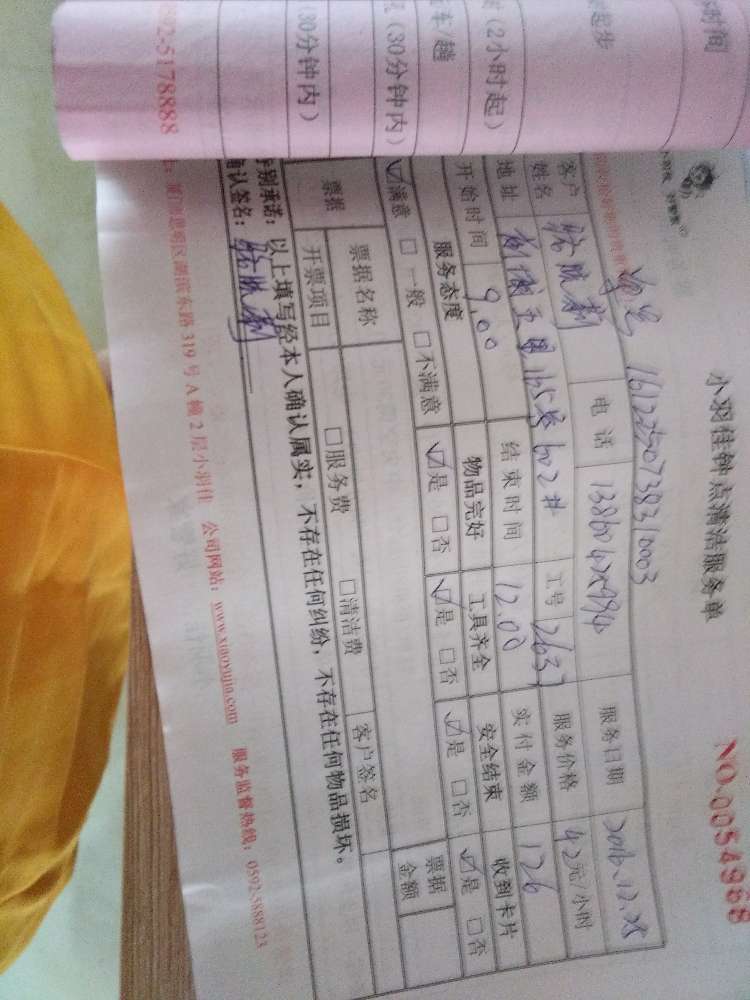 小羽佳钟点清洁服务单
NO.0054968
161225073830003
客户姓名 电话 服务日期 2016.12.28
地址 165 602# 工号 2637 服务价格 42元/小时
开始时间 9.00 结束时间 12.00 实付金额 126
服务态度 物品完好 工具齐全 安全结束 收到卡片
☑满意 □一般 □不满意 ☑是 □否 ☑是 □否 ☑是 □否 ☑是 □否
票据 票据名称 □服务费 □清洁费 客户签名 票据金额
开票项目
特别承诺：以上填写经本人确认属实，不存在任何纠纷，不存在任何物品损坏。
确认签名：
厦门市思明区湖滨东路319号A幢2层小羽佳 公司网站：www.xiaoyujia.com 服务监督热线：0592-5888123
时间
起步
(2小时起)
车/趟
(30分钟内)
(30分钟内)
592-5178888